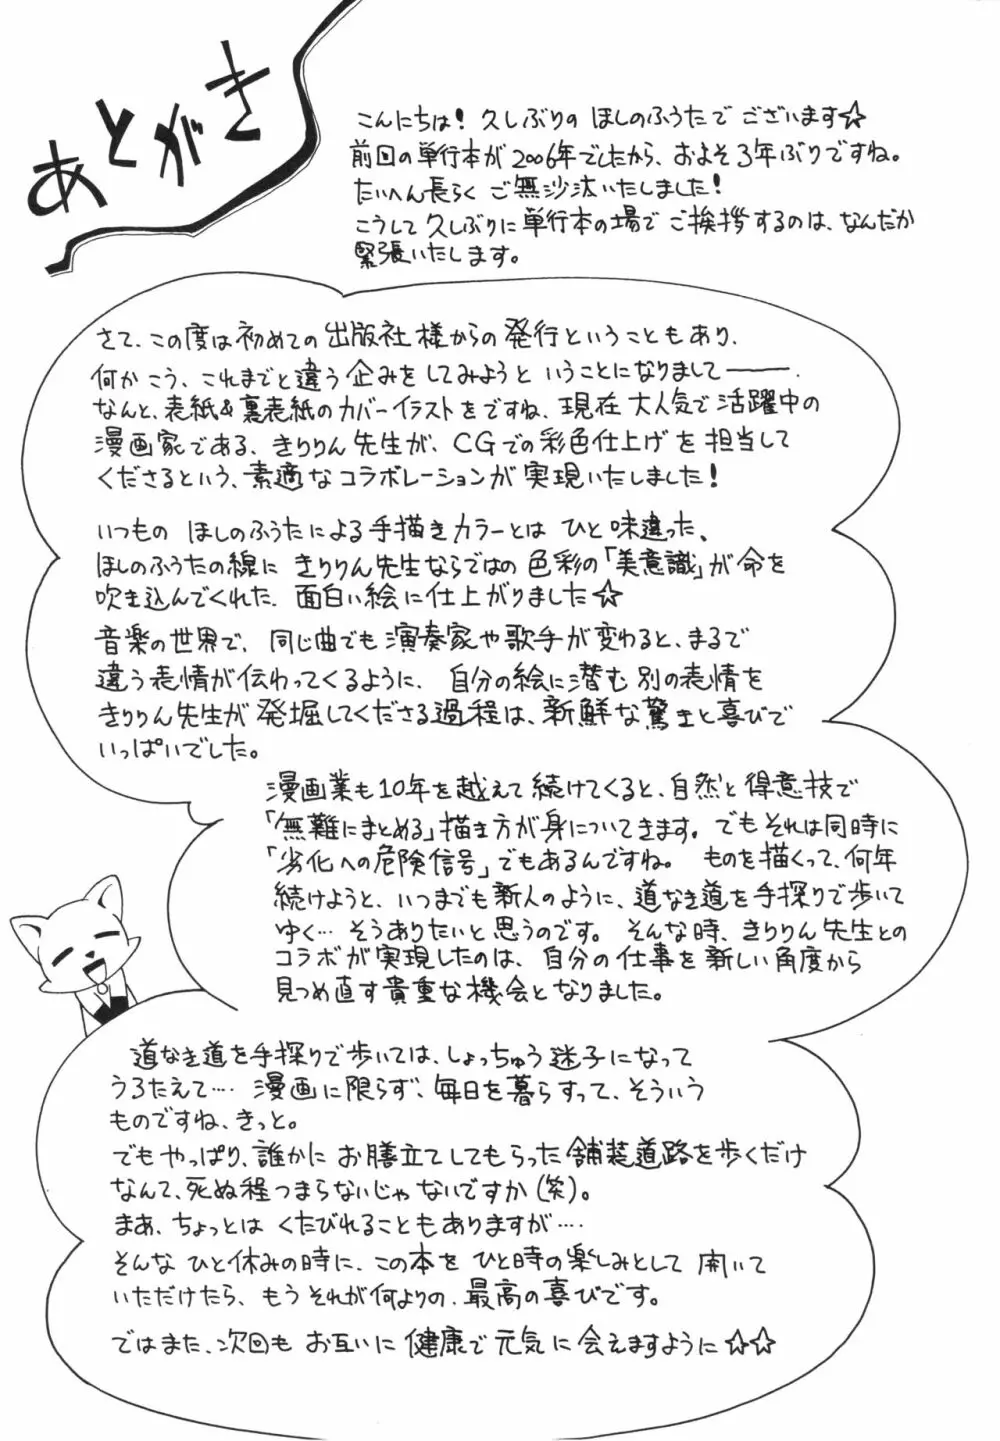 あとがき
こんにちは！久しぶりの ほしのふうたで ございます☆
前回の単行本が2006年でしたから、およそ3年ぶりですね。
たいへん長らく ご無沙汰いたしました！
こうして久しぶりに単行本の場で ご挨拶するのは、なんだか
緊張いたします。
さて、この度は初めての出版社様からの発行ということもあり、
何かこう、これまでと違う企みをしてみようと いうことになりまして———.
なんと、表紙&裏表紙のカバーイラストをですね、現在大人気で活躍中の
漫画家である、きりりん先生が、CGでの彩色仕上げを担当して
くださるという、素適なコラボレーションが実現いたしました！
いつもの ほしのふうたによる手描きカラーとは ひと味違った、
ほしのふうたの線に きりりん先生ならではの色彩の「美意識」が命を
吹き込んでくれた、面白い絵に仕上がりました☆
音楽の世界で、同じ曲でも演奏家や歌手が変わると、まるで
違う表情が伝わってくるように、自分の絵に潜む別の表情を
きりりん先生が発掘してくださる過程は、新鮮な驚きと喜びで
いっぱいでした。
漫画業も10年を越えて続けてくると、自然と得意技で
「無難にまとめる」描き方が身についてきます。でもそれは同時に
「劣化への危険信号」でもあるんですね。ものを描くって、何年
続けようと、いつまでも新人のように、道なき道を手探りで歩いて
ゆく…そうありたいと思うのです。そんな時、きりりん先生との
コラボが実現したのは、自分の仕事を新しい角度から
見つめ直す貴重な機会となりました。
道なき道を手探りで歩いては、しょっちゅう迷子になって
うろたえて‥‥漫画に限らず、毎日を暮らすって、そういう
ものですね、きっと。
でもやっぱり、誰かに お膳立てしてもらった舗装道路を歩くだけ
なんて、死ぬ程つまらないじゃないですか(笑)。
まあ、ちょっとは くたびれることもありますが‥‥
そんな ひと休みの時に、この本を ひと時の楽しみとして 開いて
いただけたら、もう それが何よりの、最高の喜びです。
ではまた、次回も お互いに 健康で元気に会えますように☆☆